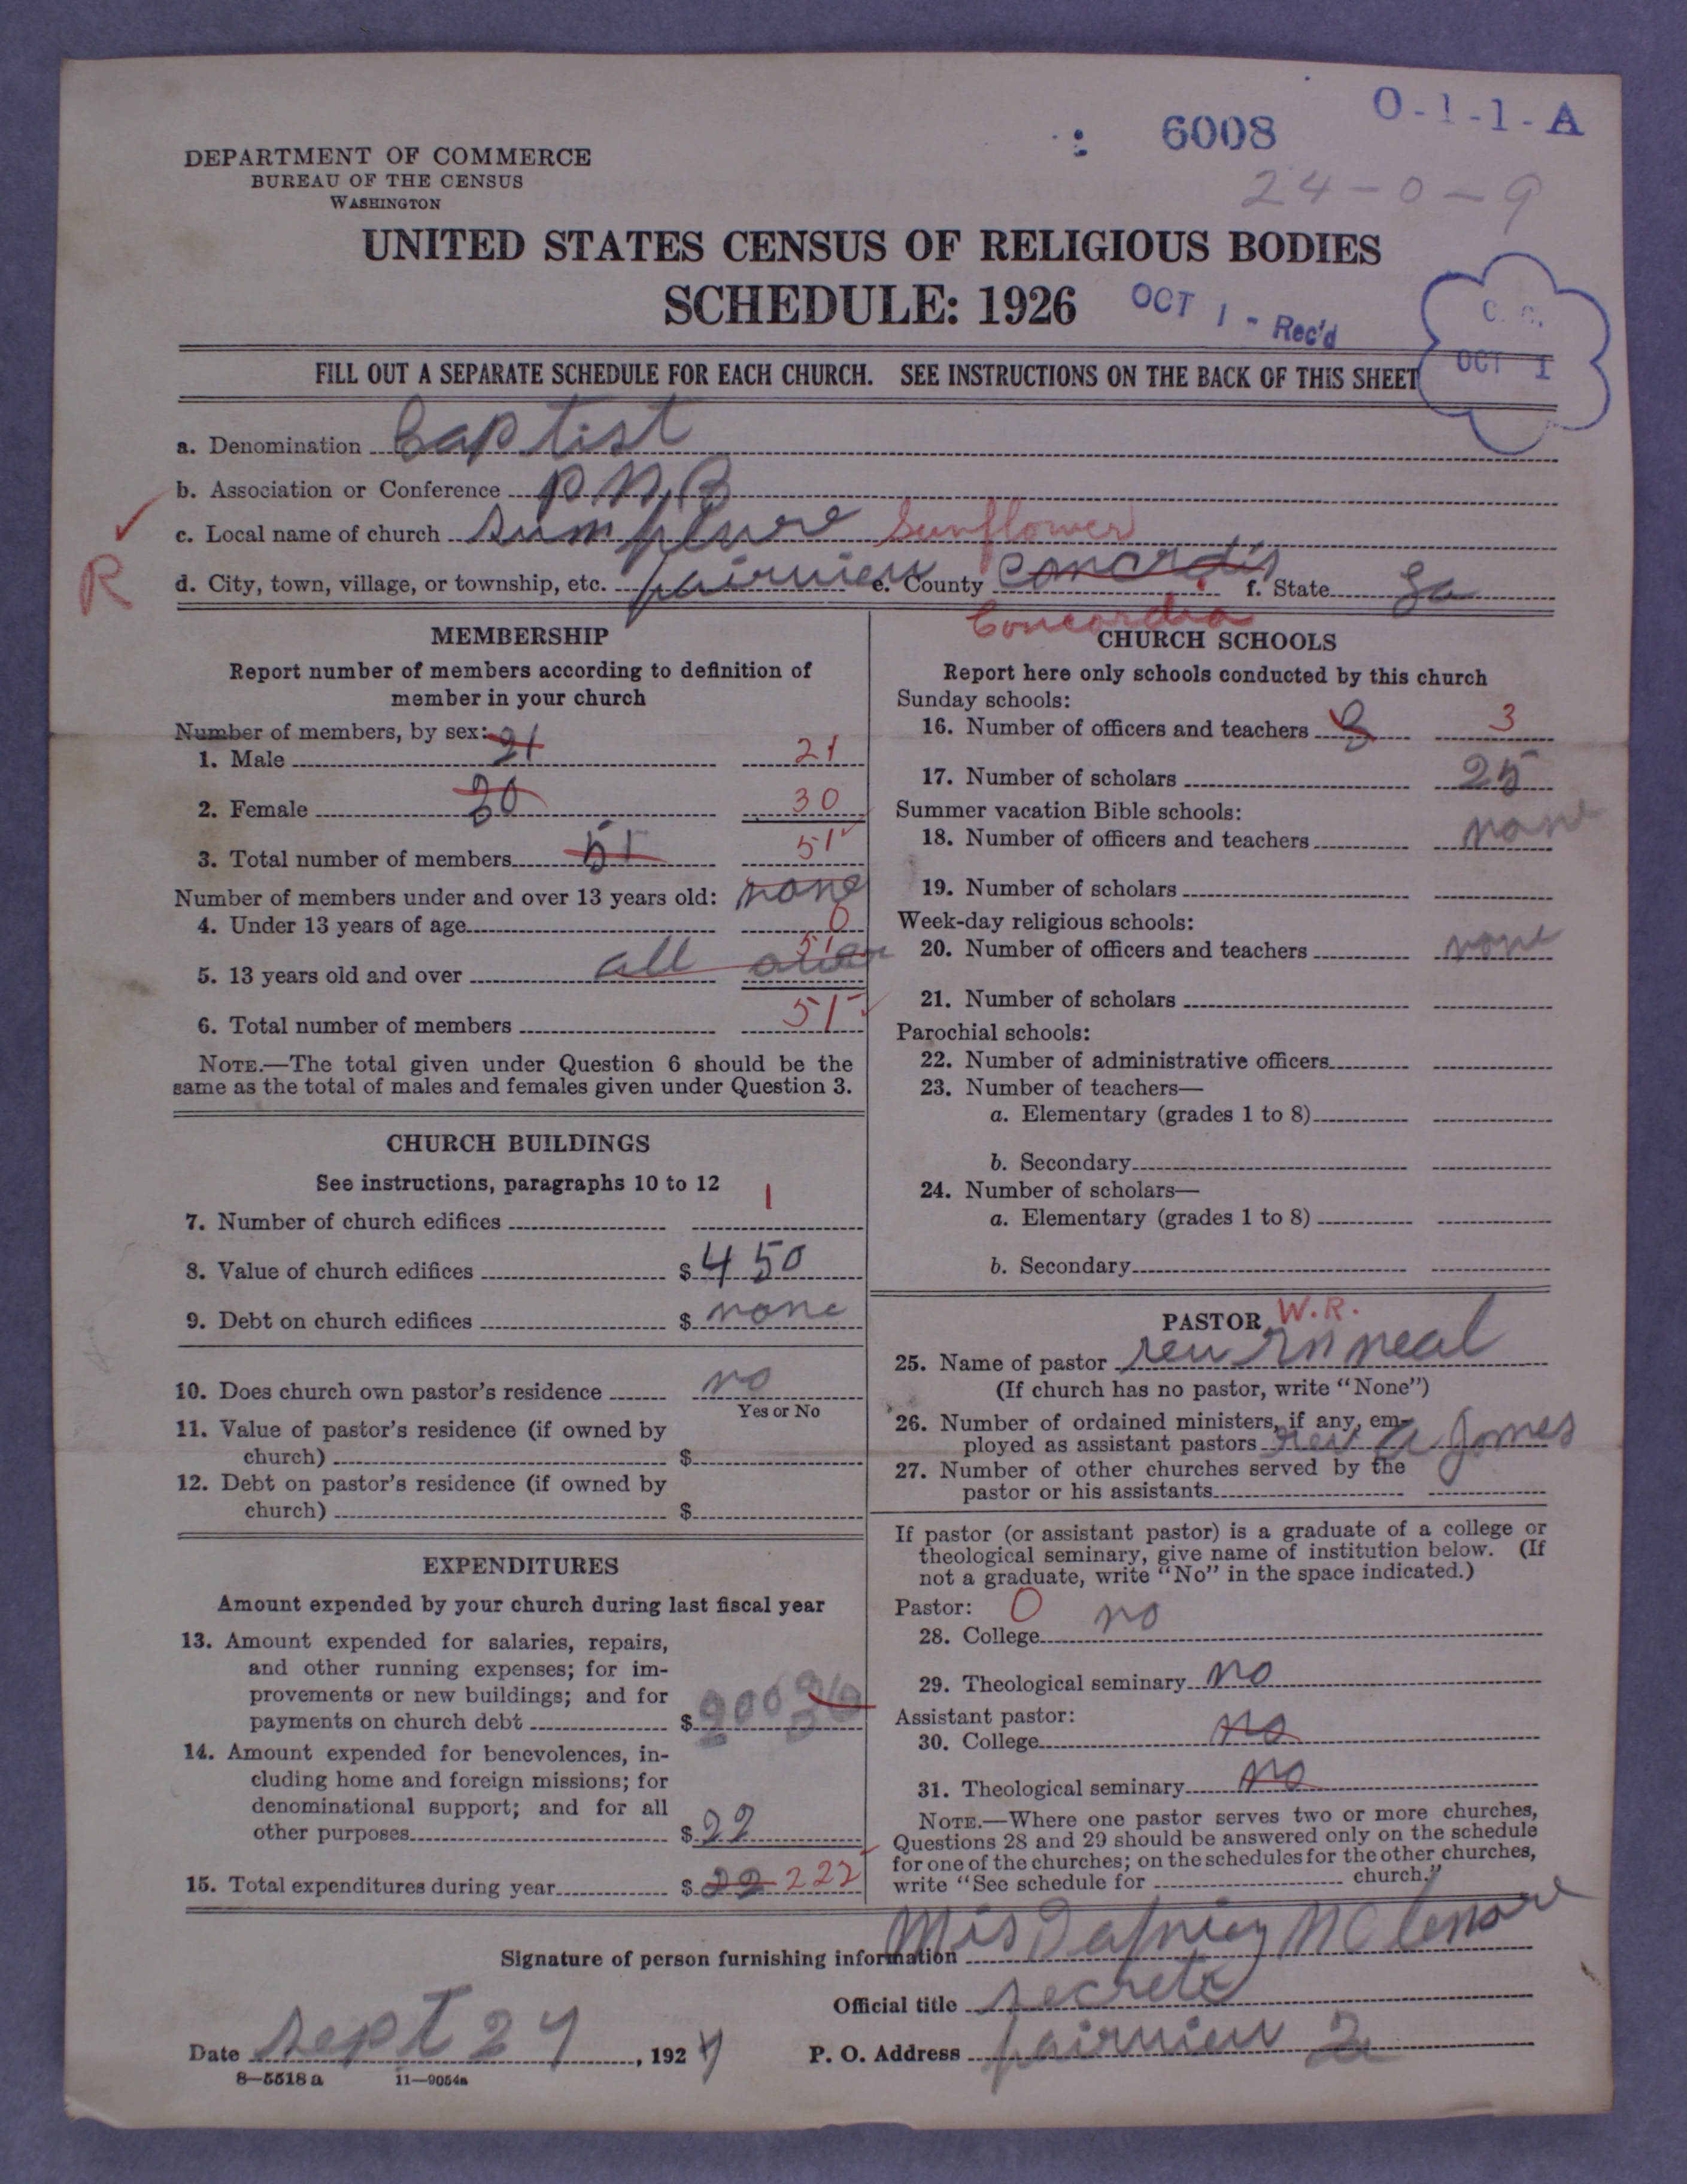 O-1-1-A
6008
24-0-9
DEPARTMENT OF COMMERCE
BUREAU OF THE CENSUS
WASHINGTON
UNITED STATES CENSUS OF RELIGIOUS BODIES
SCHEDULE: 1926
OCT 1 - Rec'd
OCT 1
FILL OUT A SEPARATE SCHEDULE FOR EACH CHURCH. SEE INSTRUCTIONS ON THE BACK OF THIS SHEET
a. Denomination Baptist
b. Association or Conference P N B
c. Local name of church Sunflower
R
d. City, town, village, or township, etc. fairview e. County Concordia f. State La
Concordia
MEMBERSHIP
Report number of members according to definition of
member in your church
Number of members, by sex:
1. Male 21 21
2. Female 30 30
3. Total number of members 51 51
Number of members under and over 13 years old: none
4. Under 13 years of age 0
51
5. 13 years old and over all over
6. Total number of members 51
NOTE.—The total given under Question 6 should be the
same as the total of males and females given under Question 3.
CHURCH BUILDINGS
See instructions, paragraphs 10 to 12
7. Number of church edifices 1
8. Value of church edifices $ 450
9. Debt on church edifices $ none
10. Does church own pastor's residence no
Yes or No
11. Value of pastor's residence (if owned by
church) $
12. Debt on pastor's residence (if owned by
church) $
EXPENDITURES
Amount expended by your church during last fiscal year
13. Amount expended for salaries, repairs,
and other running expenses; for im-
provements or new buildings; and for
payments on church debt $ 200
14. Amount expended for benevolences, in-
cluding home and foreign missions; for
denominational support; and for all
other purposes $ 22
15. Total expenditures during year $ 22 222
CHURCH SCHOOLS
Report here only schools conducted by this church
Sunday schools:
16. Number of officers and teachers 3
17. Number of scholars 25
Summer vacation Bible schools:
18. Number of officers and teachers none
19. Number of scholars
Week-day religious schools:
20. Number of officers and teachers none
21. Number of scholars
Parochial schools:
22. Number of administrative officers
23. Number of teachers—
a. Elementary (grades 1 to 8)
b. Secondary
24. Number of scholars—
a. Elementary (grades 1 to 8)
b. Secondary
PASTOR W.R.
25. Name of pastor rev neal
(If church has no pastor, write "None")
26. Number of ordained ministers, if any, em-
ployed as assistant pastors rev a Jones
27. Number of other churches served by the
pastor or his assistants
If pastor (or assistant pastor) is a graduate of a college or
theological seminary, give name of institution below. (If
not a graduate, write "No" in the space indicated.)
Pastor: 0
28. College no
29. Theological seminary no
Assistant pastor:
30. College no
31. Theological seminary no
NOTE.—Where one pastor serves two or more churches,
Questions 28 and 29 should be answered only on the schedule
for one of the churches; on the schedules for the other churches,
write "See schedule for church."
Signature of person furnishing information Mis
Official title secrete
Date sept 27, 1927
P. O. Address fairview La
8—5518 a 11—9054a